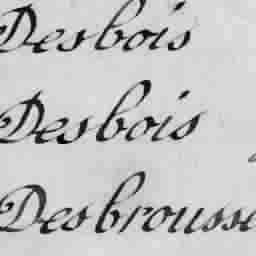 Desbois
Desbois
Desbrousse